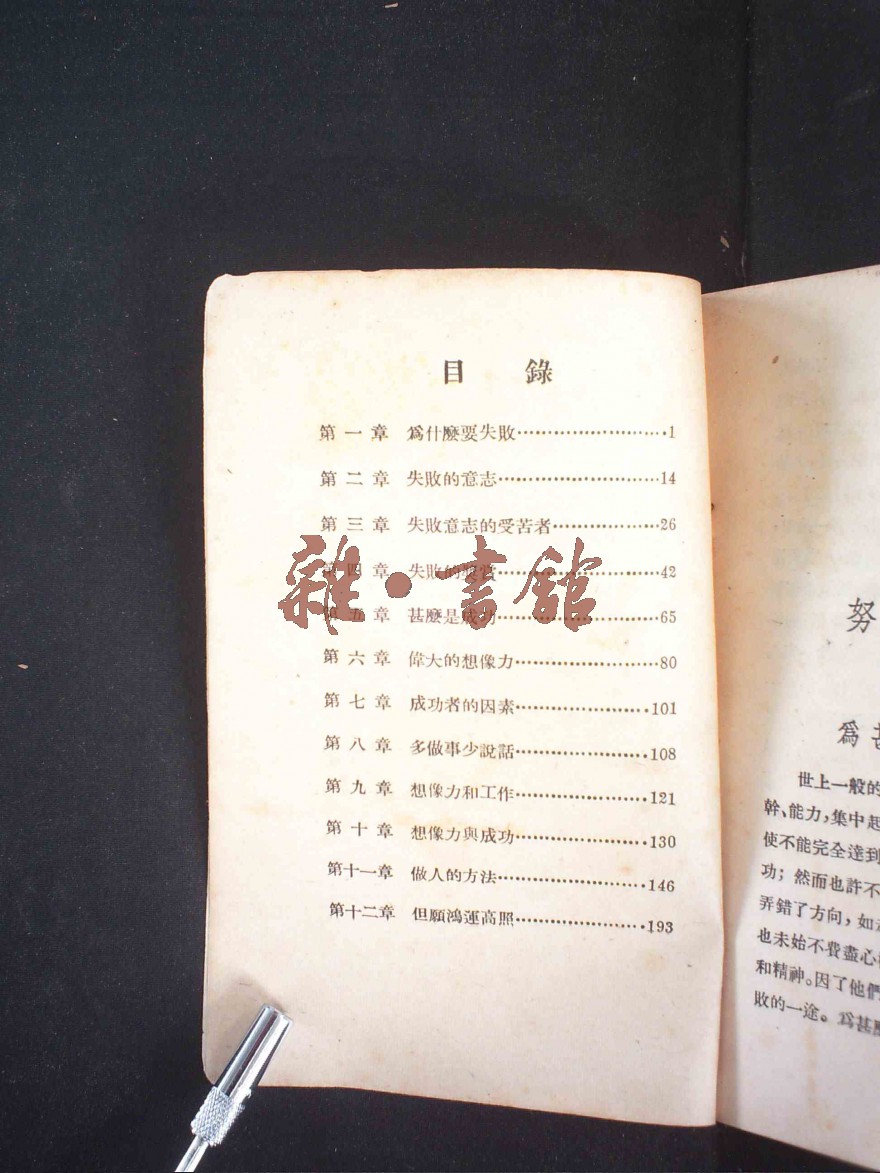 目錄
第一章 爲什麼要失敗························1
第二章 失敗的意志························14
第三章 失敗意志的受苦者················26
第四章 失敗的························42
第五章 甚麼是成功························65
第六章 偉大的想像力····················80
第七章 成功者的因素····················101
第八章 多做事少說話····················108
第九章 想像力和工作····················121
第十章 想像力與成功····················130
第十一章 做人的方法····················146
第十二章 但願鴻運高照··················193
雜·書館
努
爲甚
世上一般的
幹、能力，集中起
使不能完全達到
功；然而也許不
弄錯了方向，如
也未始不費盡心
和精神。因了他們
敗的一途。爲甚麼